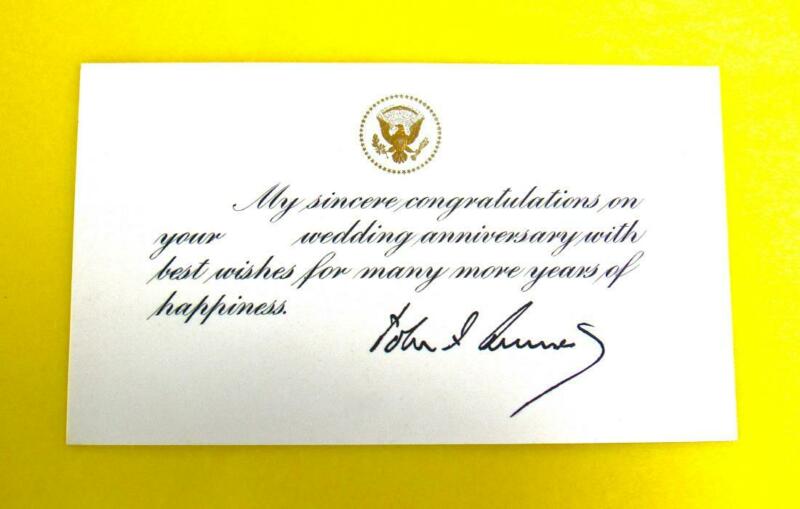 My sincere congratulations on
your wedding anniversary with
best wishes for many more years of
happiness.
John